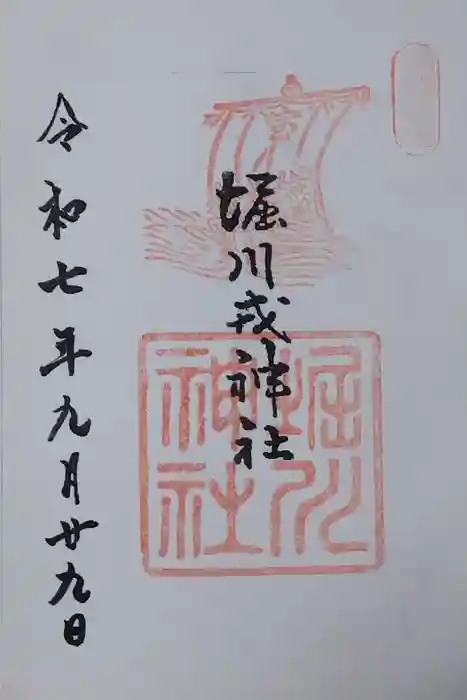 堀川戎神社
堀川
神社
令和七年九月廿九日